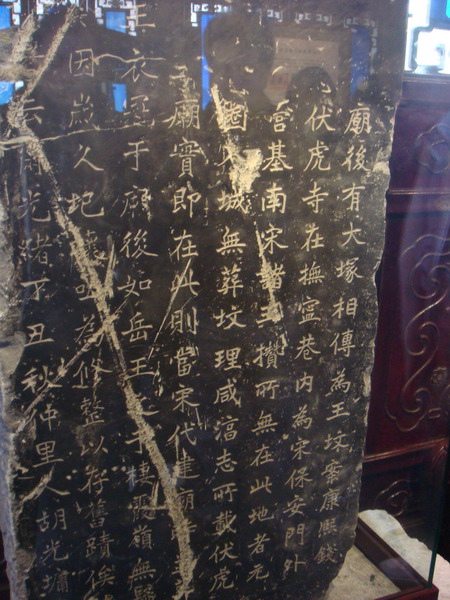 廟後有大塚相傳為王坟案康熙錢
伏虎寺在撫寧巷內為宋保安門外
宮基南宋諸王攢所無在此地者元
國入城無葬坟理咸淳志所載伏虎
廟實即在此則當宋代建廟
王衣冠于廟後如岳王之于棲霞嶺無
因歲久地為修整以存舊蹟俟
云光緒丁丑秋仲里人胡光墉